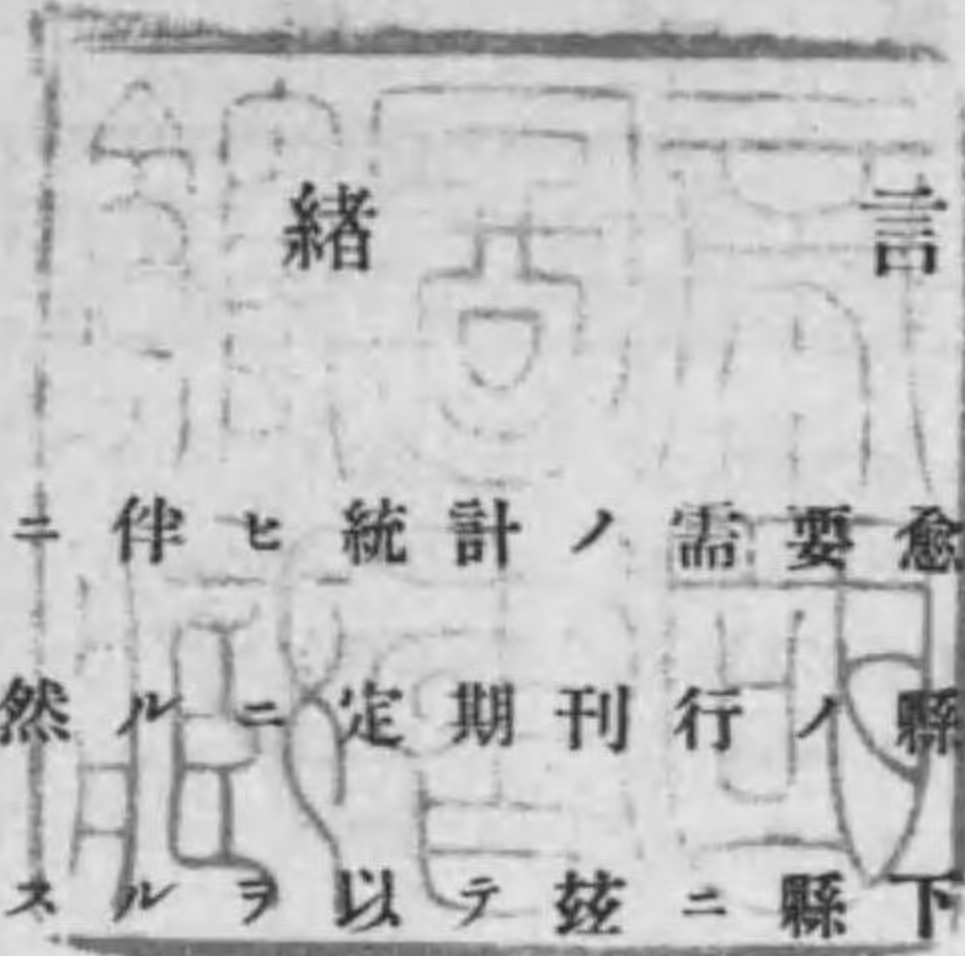 緒言
ニ伴ヒ統計ノ需要愈
然ルニ定期刊行ノ縣
スルヲ以テ茲ニ縣下